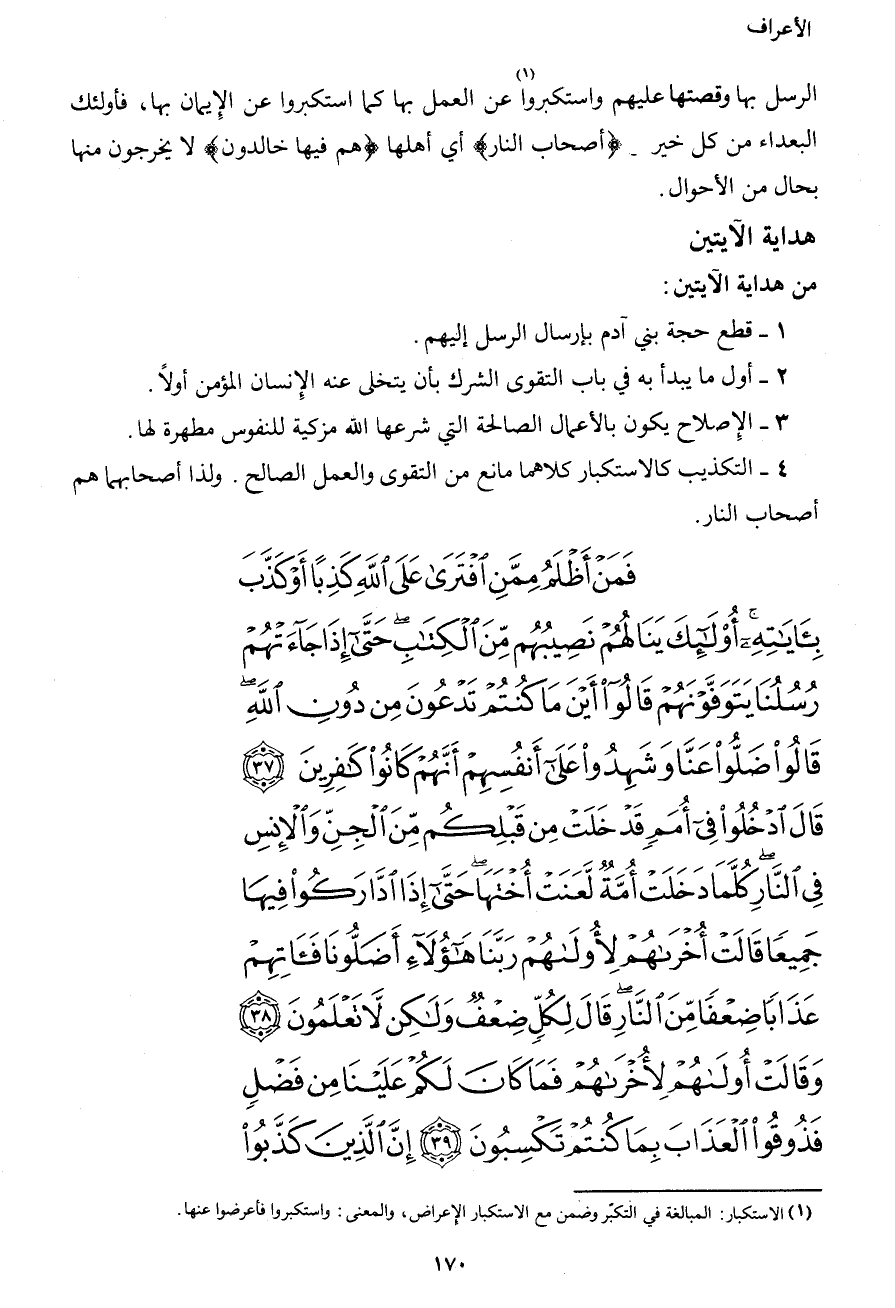 الأعراف
الرسل بها وقصتها عليهم واستكبروا(١) عن العمل بها كما استكبروا عن الإيمان بها، فأولئك
البعداء من كل خير ـ ﴿أصحاب النار﴾ أي أهلها ﴿هم فيها خالدون﴾ لا يخرجون منها
بحال من الأحوال.
هداية الآيتين
من هداية الآيتين:
١ ـ قطع حجة بني آدم بإرسال الرسل إليهم.
٢ ـ أول ما يبدأ به في باب التقوى الشرك بأن يتخلى عنه الإنسان المؤمن أولاً.
٣ ـ الإصلاح يكون بالأعمال الصالحة التي شرعها الله مزكية للنفوس مطهرة لها.
٤ ـ التكذيب كالاستكبار كلاهما مانع من التقوى والعمل الصالح. ولذا أصحابهما هم
أصحاب النار.
فَمَنْ أَظْلَمُ مِمَّنِ ٱفْتَرَىٰ عَلَى ٱللَّهِ كَذِبًا أَوْ كَذَّبَ
بِـَٔايَـٰتِهِۦٓ ۚ أُو۟لَـٰٓئِكَ يَنَالُهُمْ نَصِيبُهُم مِّنَ ٱلْكِتَـٰبِ ۖ حَتَّىٰٓ إِذَا جَآءَتْهُمْ
رُسُلُنَا يَتَوَفَّوْنَهُمْ قَالُوٓا۟ أَيْنَ مَا كُنتُمْ تَدْعُونَ مِن دُونِ ٱللَّهِ ۖ
قَالُوا۟ ضَلُّوا۟ عَنَّا وَشَهِدُوا۟ عَلَىٰٓ أَنفُسِهِمْ أَنَّهُمْ كَانُوا۟ كَـٰفِرِينَ ٣٧
قَالَ ٱدْخُلُوا۟ فِىٓ أُمَمٍ قَدْ خَلَتْ مِن قَبْلِكُم مِّنَ ٱلْجِنِّ وَٱلْإِنسِ
فِى ٱلنَّارِ ۖ كُلَّمَا دَخَلَتْ أُمَّةٌ لَّعَنَتْ أُخْتَهَا ۖ حَتَّىٰٓ إِذَا ٱدَّارَكُوا۟ فِيهَا
جَمِيعًا قَالَتْ أُخْرَىٰهُمْ لِأُولَىٰهُمْ رَبَّنَا هَـٰٓؤُلَآءِ أَضَلُّونَا فَـَٔاتِهِمْ
عَذَابًا ضِعْفًا مِّنَ ٱلنَّارِ ۖ قَالَ لِكُلٍّ ضِعْفٌ وَلَـٰكِن لَّا تَعْلَمُونَ ٣٨
وَقَالَتْ أُولَىٰهُمْ لِأُخْرَىٰهُمْ فَمَا كَانَ لَكُمْ عَلَيْنَا مِن فَضْلٍ
فَذُوقُوا۟ ٱلْعَذَابَ بِمَا كُنتُمْ تَكْسِبُونَ ٣٩ إِنَّ ٱلَّذِينَ كَذَّبُوا۟
(١) الاستكبار: المبالغة في التكبّر وضمن مع الاستكبار الإعراض، والمعنى: واستكبروا فأعرضوا عنها.
١٧٠